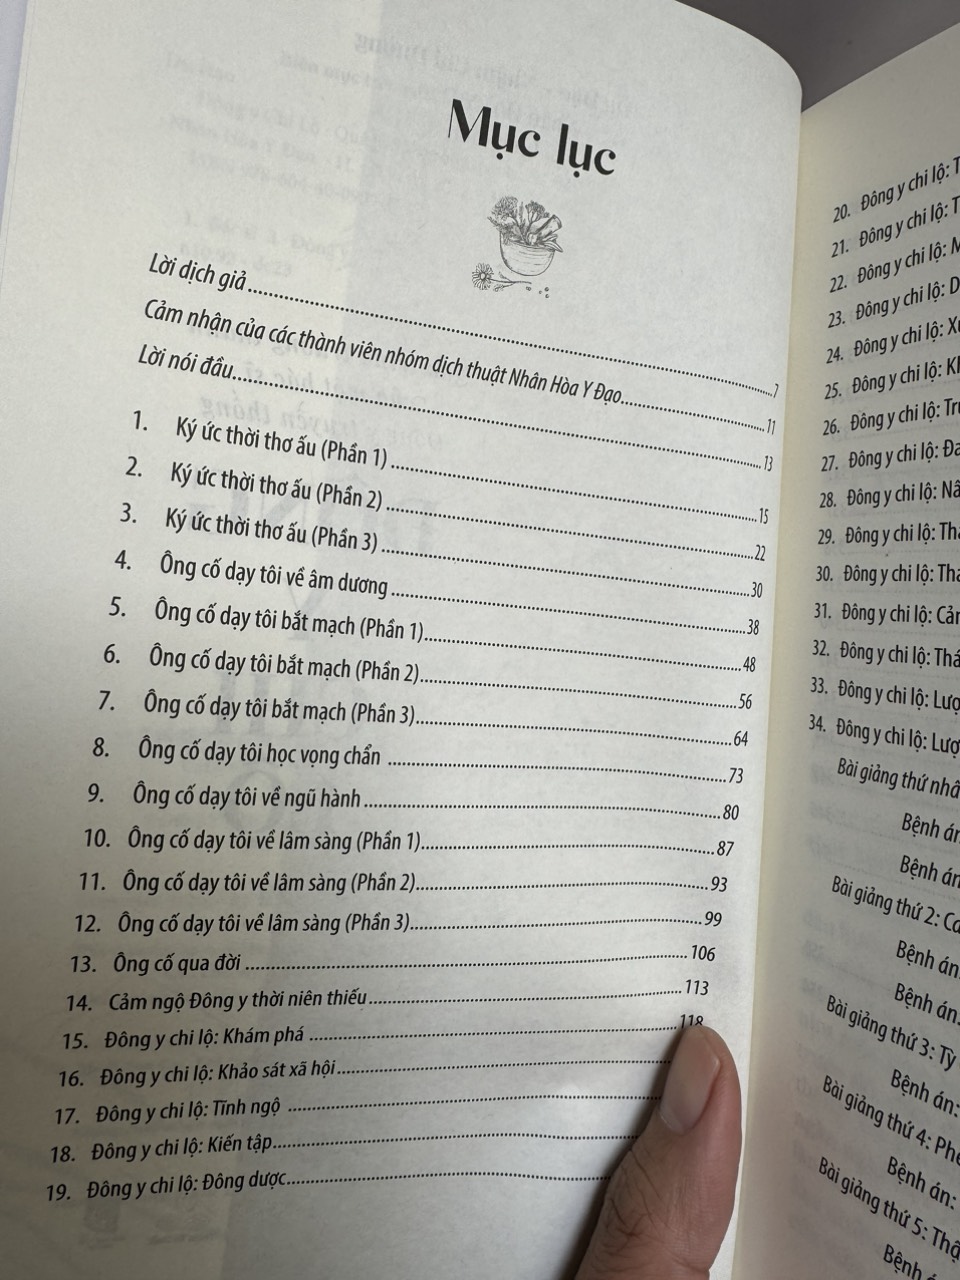 Mục lục
Lời dịch giả ........ 7
Cảm nhận của các thành viên nhóm dịch thuật Nhân Hòa Y Đạo ........ 11
Lời nói đầu ........ 13
1. Ký ức thời thơ ấu (Phần 1) ........ 15
2. Ký ức thời thơ ấu (Phần 2) ........ 22
3. Ký ức thời thơ ấu (Phần 3) ........ 30
4. Ông cố dạy tôi về âm dương ........ 38
5. Ông cố dạy tôi bắt mạch (Phần 1) ........ 48
6. Ông cố dạy tôi bắt mạch (Phần 2) ........ 56
7. Ông cố dạy tôi bắt mạch (Phần 3) ........ 64
8. Ông cố dạy tôi học vọng chẩn ........ 73
9. Ông cố dạy tôi về ngũ hành ........ 80
10. Ông cố dạy tôi về lâm sàng (Phần 1) ........ 87
11. Ông cố dạy tôi về lâm sàng (Phần 2) ........ 93
12. Ông cố dạy tôi về lâm sàng (Phần 3) ........ 99
13. Ông cố qua đời ........ 106
14. Cảm ngộ Đông y thời niên thiếu ........ 113
15. Đông y chi lộ: Khám phá ........ 118
16. Đông y chi lộ: Khảo sát xã hội ........
17. Đông y chi lộ: Tĩnh ngộ ........
18. Đông y chi lộ: Kiến tập ........
19. Đông y chi lộ: Đông dược ........
20. Đông y chi lộ:
21. Đông y chi lộ:
22. Đông y chi lộ:
23. Đông y chi lộ:
24. Đông y chi lộ:
25. Đông y chi lộ:
26. Đông y chi lộ:
27. Đông y chi lộ:
28. Đông y chi lộ:
29. Đông y chi lộ:
30. Đông y chi lộ:
31. Đông y chi lộ:
32. Đông y chi lộ:
33. Đông y chi lộ:
34. Đông y chi lộ:
Bài giảng thứ
Bệnh án
Bệnh án
Bài giảng thứ 2:
Bệnh án
Bệnh án:
Bài giảng thứ 3: Tỳ
Bệnh án:
Bài giảng thứ 4:
Bệnh án:
Bài giảng thứ 5:
Bệnh